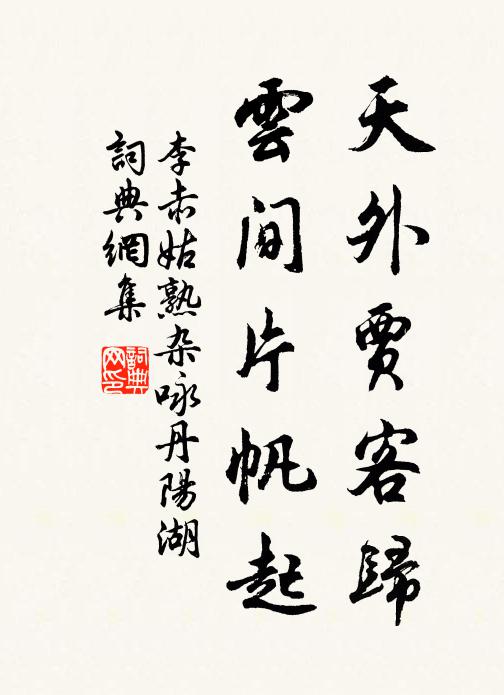 天外賈客歸
雲間片帆起
李赤姑熟杂咏丹陽湖
詞典網集
詞典网印